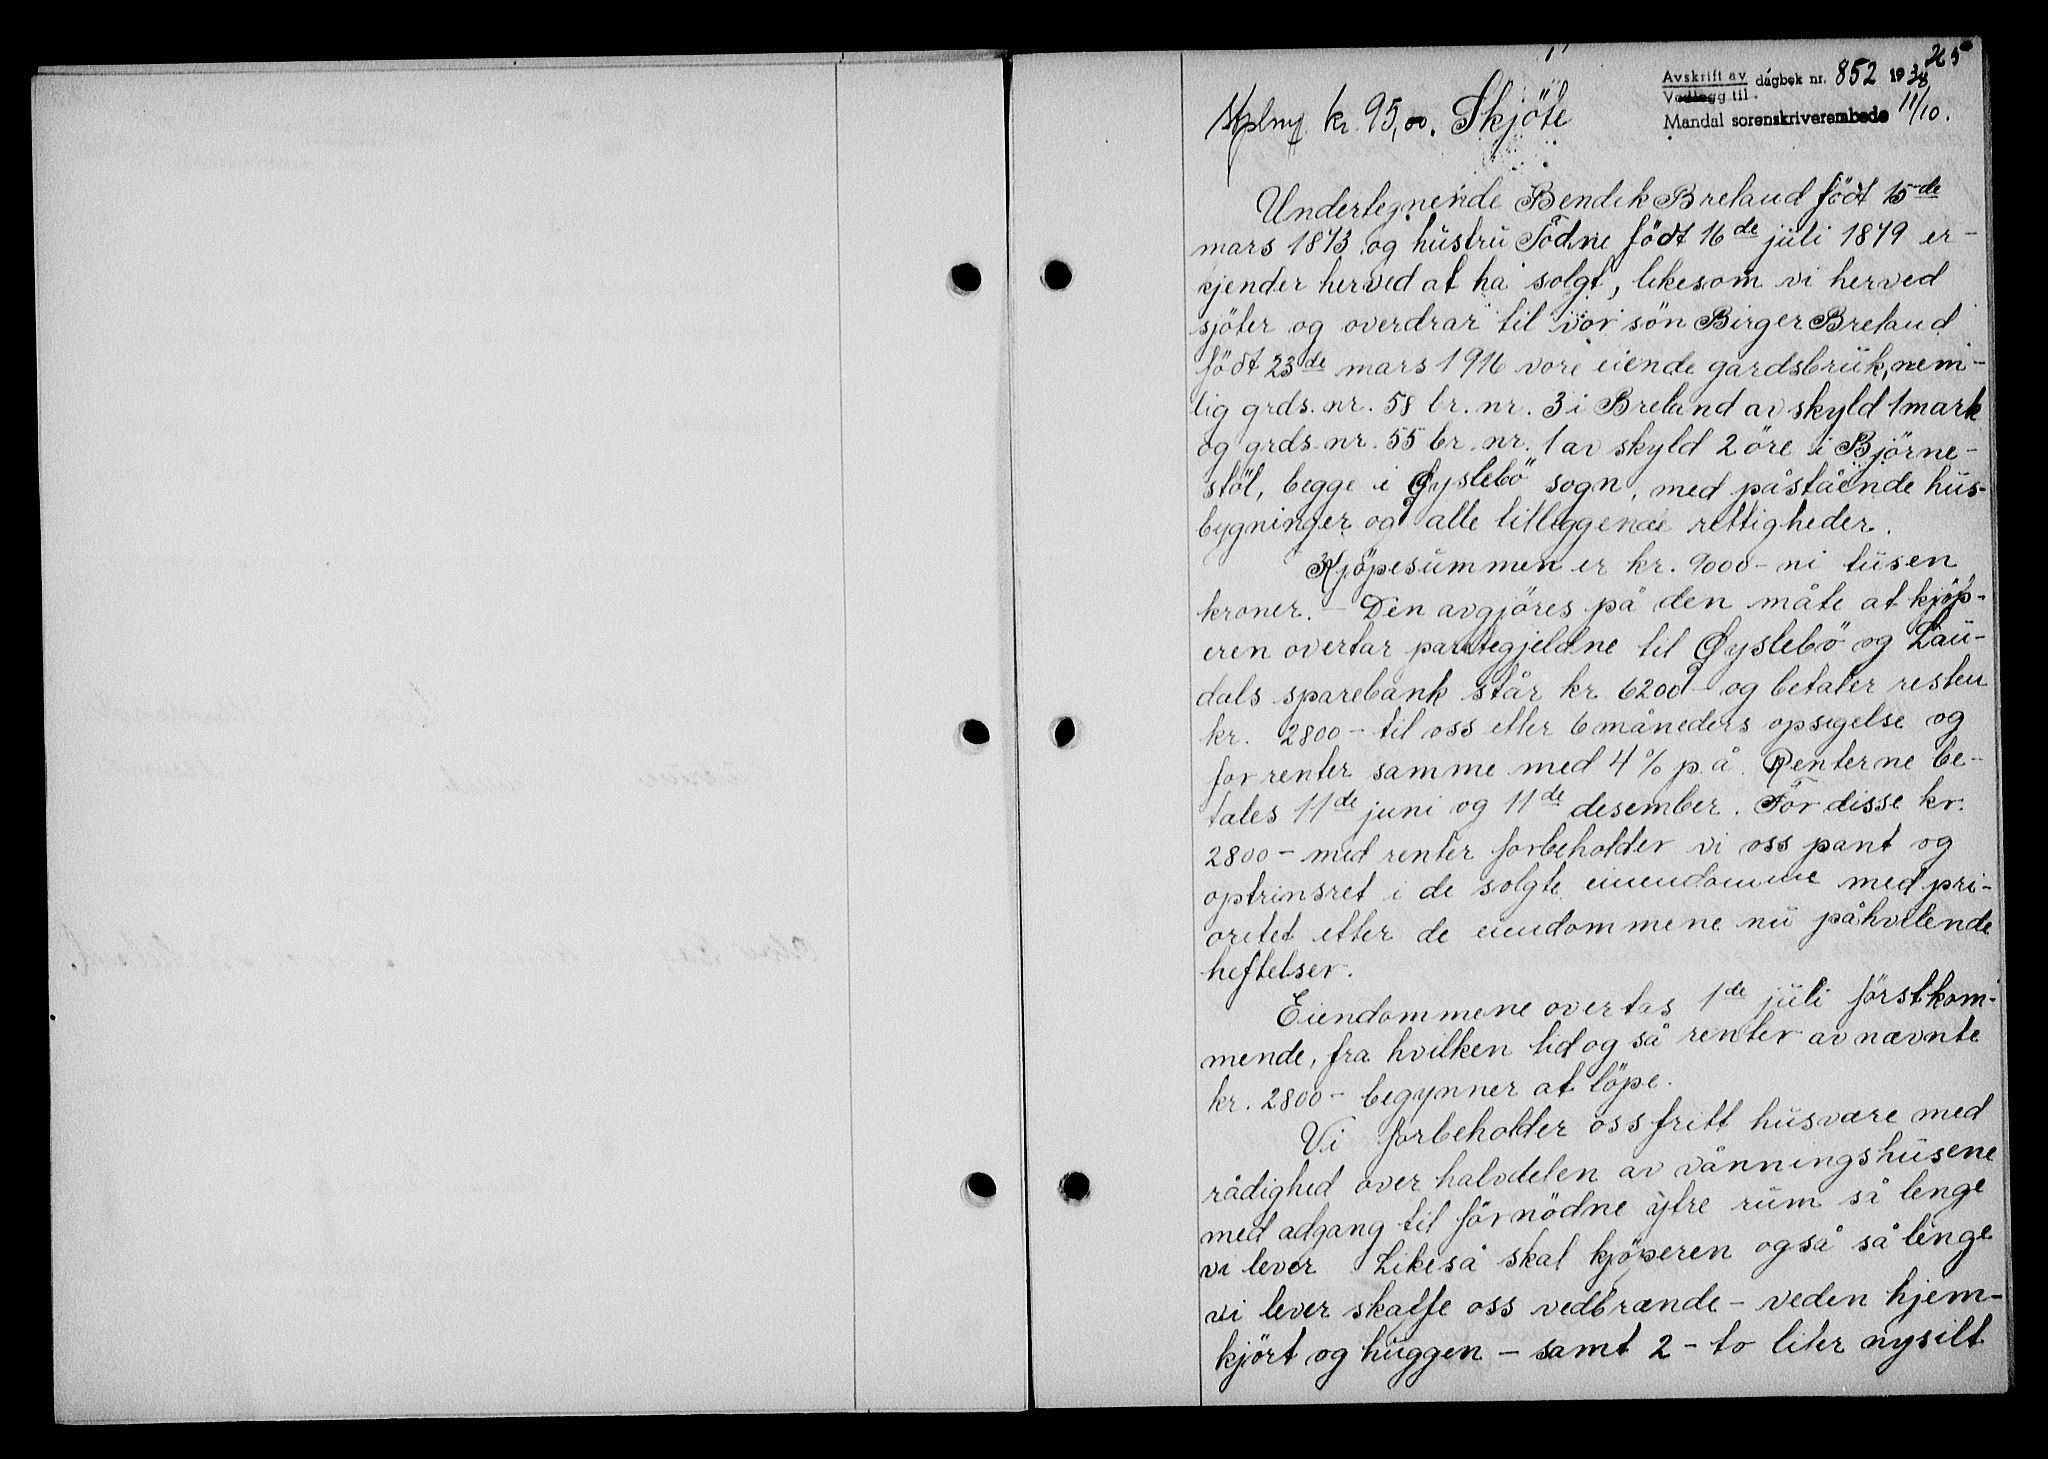 265
Avskrift av dagbok nr. 852 1938
Vedlegg til
Mandal sorenskriverembede 11/10.
kr. 95,00. Skjöte
Undertegnende Bendik Breland födt 15de
mars 1873 og hustru Tödne födt 16de juli 1879 er-
kjender herved at ha solgt, likesom vi herved
sjöter og overdrar til vor sön Birger Breland
födt 23de mars 1916 vore eiende gardsbruk, nem-
lig grds. nr. 58 br. nr. 3 i Breland av skyld 1 mark
og grds. nr. 55 br. nr. 1 av skyld 2 öre i Björne-
stöl, begge i Øyslebö sogn, med påstående hus-
bygninger og alle tilliggende rettigheder.
Kjöpesummen er kr. 9000 - ni tusen
kroner. - Den avgjöres på den måte at kjöp-
eren overtar pantegjeldne til Øyslebö og Lau-
dals sparebank står kr. 6200 - og betaler resten
kr. 2800 - til oss etter 6 måneders opsigelse og
forrenter samme med 4% p.å. Renterne be-
tales 11de juni og 11de desember. For disse kr.
2800 - med renter forbeholder vi oss pant og
optrinsret i de solgte eiendomme med pri-
oritet etter de eiendommene nu påhvilende
heftelser.
Eiendommene overtas 1de juli förstkom-
mende, fra hvilken tid og så renter av nævnte
kr. 2800 - begynner at löpe.
Vi forbeholder oss fritt husvære med
rådighed over halvdelen av våningshusene
med adgang til fornödne ytre rum så lenge
vi lever Likeså skal kjöperen også så lenge
vi lever skaffe oss vedbrænde - veden hjem-
kjört og huggen - samt 2 - to liter nysilt